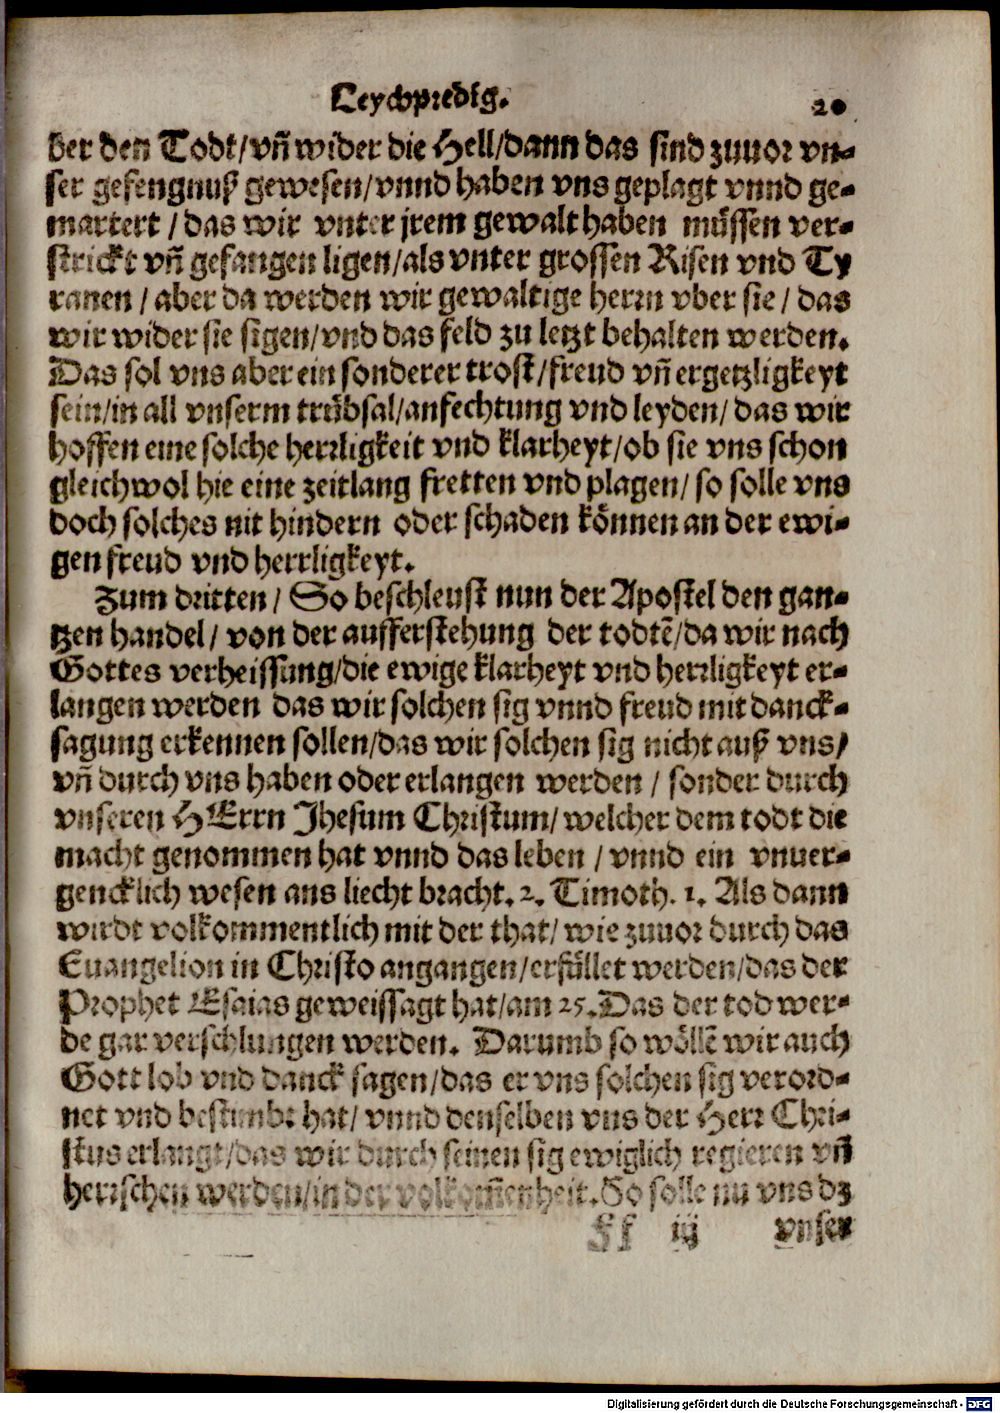 Leychpredig. 20
ber den Todt/vñ wider die Hell/dann das sind zuuor vn-
ser gefengnuß gewesen/vnnd haben vns geplagt vnnd ge-
martert / das wir vnter jrem gewalt haben müssen ver-
strickt vñ gefangen ligen/als vnter grossen Risen vnd Ty
ranen / aber da werden wir gewaltige herrn vber sie / das
wir wider sie sigen/vnd das feld zu letzt behalten werden.
Das sol vns aber ein sonderer trost/freud vñ ergetzligkeyt
sein/in all vnserm trübsal/anfechtung vnd leyden/ das wir
hoffen eine solche herrligkeit vnd klarheyt/ob sie vns schon
gleichwol hie eine zeitlang fretten vnd plagen/ so solle vns
doch solches nit hindern oder schaden können an der ewi-
gen freud vnd herrligkeyt.
Zum dritten / So beschleust nun der Apostel den gan-
tzen handel / von der aufferstehung der todtẽ/da wir nach
Gottes verheissung/die ewige klarheyt vnd herrligkeyt er-
langen werden das wir solchen sig vnnd freud mit danck-
sagung erkennen sollen/das wir solchen sig nicht auß vns/
vñ durch vns haben oder erlangen werden / sonder durch
vnseren HErrn Jhesum Christum/ welcher dem todt die
macht genommen hat vnnd das leben / vnnd ein vnuer-
gencklich wesen ans liecht bracht. 2. Timoth. 1. Als dann
wirdt volkommentlich mit der that/ wie zuuor durch das
Euangelion in Christo angangen/erfüllet werden/das der
Prophet Esaias geweissagt hat/am 25. Das der tod wer-
de gar verschlungen werden. Darumb so wöllẽ wir auch
Gott lob vnd danck sagen/das er vns solchen sig verord-
net vnd bestimbt hat/ vnnd denselben vns der Herr Chri-
stus erlangt/das wir durch seinen sig ewiglich regieren vñ
herrschen werden/in der volkom̃enheit. So solle nu vns dz
Ff iij vnser
Digitalisierung gefördert durch die Deutsche Forschungsgemeinschaft - DFG